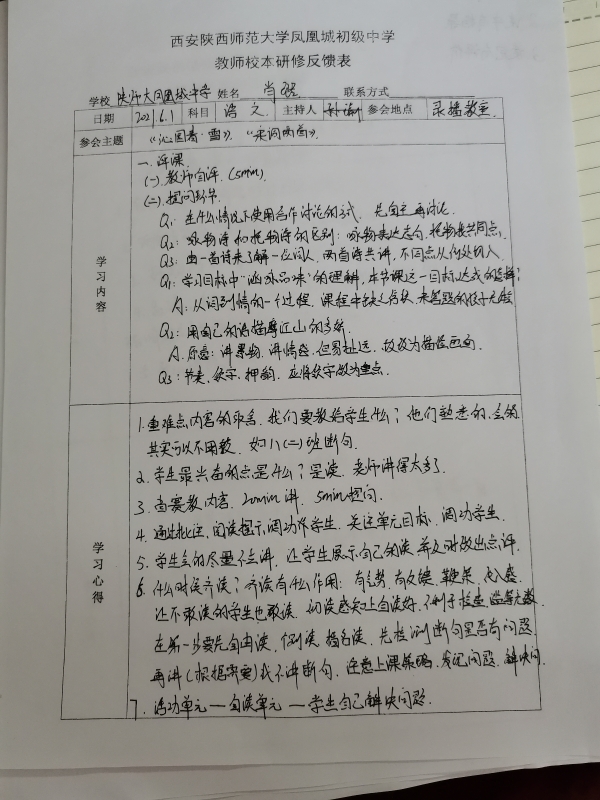 西安陕西师范大学凤凰城初级中学
教师校本研修反馈表
学校 陕师大凤凰城中学 姓名 肖 联系方式
日期 2021.6.1 科目 语文 主持人 参会地点 录播教室
参会主题 《沁园春·雪》.
学习内容
一. 评课
(一). 教师自评. (5min).
(二). 提问环节
Q1: 在什么情况下使用合作讨论的方式. 先自主再讨论.
Q2: 咏物诗和托物诗的区别: 咏物表达志向, 托物找共同点.
Q3: 由一首诗来了解一位词人, 两首诗共讲, 不同点从何处切入
Q1: 学习目标中"涵泳品味"的理解, 本节课这一目标达成的怎样?
A: 从词到情的一个过程. 课程中缺乏
Q2: 用自己的话描摹江山的多娇
A. 原意: 讲景物. 讲情感. 但易扯远. 故设为描绘画面.
Q3: 节奏. 炼字. 押韵. 应将炼字做为重点.
学习心得
1. 重难点内容的. 我们要教给学生什么? 他们熟悉的, 会的
其实可以不用教. 如八(二)班断句.
2. 学生最兴奋的点是什么? 是读. 老师讲得太多了.
3. 自赛教内容. 20min 讲. 5min提问.
4. 通过批注, 阅读提示, 调动学生. 关注单元目标. 调动学生.
5. 学生会的尽量不去讲. 让学生展示自己的读, 并及时做出点评.
6. 什么时候齐读? 齐读有什么作用: 有气势. 有反馈. 鞭策. 代入感.
让不敢读的学生也敢读. 初读感知上自读好. 不利于检查,
在第一步要先自由读. 个别读. 指名读. 先检测断句是否有问题.
再讲(根据需要)找不讲断句. 注意上课策略. 发现问题. 解决问
7. 活动单元 — 自读单元 — 学生自己解决问题.